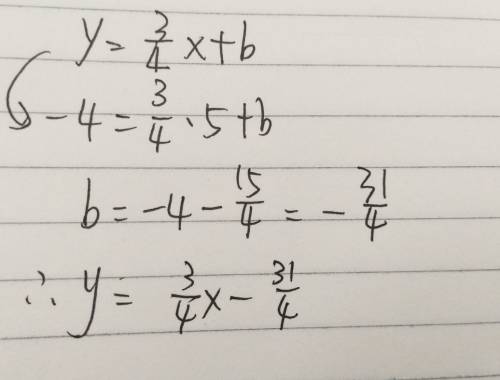 y = 3/4 x + b
-4 = 3/4 · 5 + b
b = -4 - 15/4 = - 31/4
∴ y = 3/4 x - 31/4